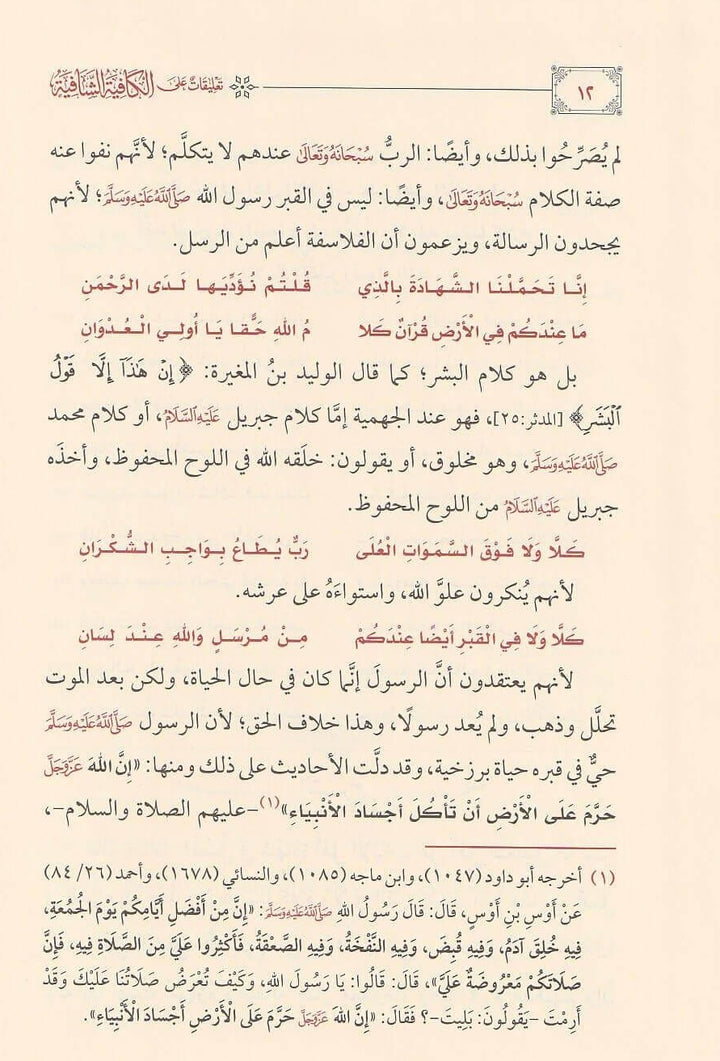 ١٢ تعليقات على الكافية الشافية
لم يُصَرِّحُوا بذلك، وأيضًا: الربُّ سُبْحَانَهُ وَتَعَالَى عندهم لا يتكلَّم؛ لأنَّهم نفوا عنه
صفة الكلام سُبْحَانَهُ وَتَعَالَى، وأيضًا: ليس في القبر رسول الله صَلَّى اللَّهُ عَلَيْهِ وَسَلَّمَ؛ لأنهم
يجحدون الرسالة، ويزعمون أن الفلاسفة أعلم من الرسل.
إِنَّا تَحَمَّلْنَا الشَّهَادَةَ بِالَّذِي قُلْتُمْ نُؤَدِّيهَا لَدَى الرَّحْمَنِ
مَا عِنْدَكُمْ فِي الْأَرْضِ قُرْآنٌ كَلا مُ اللهِ حَقًّا يَا أُولِي الْعُدْوَانِ
بل هو كلام البشر؛ كما قال الوليد بنُ المغيرة: ﴿إِنْ هَٰذَآ إِلَّا قَوْلُ
ٱلْبَشَرِ﴾ [المدثر:٢٥]، فهو عند الجهمية إمَّا كلام جبريل عَلَيْهِ السَّلَامُ، أو كلام محمد
صَلَّى اللَّهُ عَلَيْهِ وَسَلَّمَ، وهو مخلوق، أو يقولون: خلَقه الله في اللوح المحفوظ، وأخذَه
جبريل عَلَيْهِ السَّلَامُ من اللوح المحفوظ.
كَلَّا وَلَا فَوْقَ السَّمَوَاتِ الْعُلَى رَبٌّ يُطَاعُ بِوَاجِبِ الشُّكْرَانِ
لأنهم يُنكرون علوَّ الله، واستواءَهُ على عرشه.
كَلَّا وَلَا فِي الْقَبْرِ أَيْضًا عِنْدَكُمْ مِنْ مُرْسَلٍ وَاللهِ عِنْدَ لِسَانِ
لأنهم يعتقدون أنَّ الرسولَ إنَّما كان في حال الحياة، ولكن بعد الموت
تحلَّل وذهب، ولم يُعد رسولًا، وهذا خلاف الحق؛ لأن الرسول صَلَّى اللَّهُ عَلَيْهِ وَسَلَّمَ
حيٌّ في قبره حياة برزخية، وقد دلَّت الأحاديث على ذلك ومنها: «إِنَّ اللهَ عَزَّ وَجَلَّ
حَرَّمَ عَلَى الْأَرْضِ أَنْ تَأْكُلَ أَجْسَادَ الْأَنْبِيَاءِ»(١) -عليهم الصلاة والسلام-،
(١) أخرجه أبو داود (١٠٤٧)، وابن ماجه (١٠٨٥)، والنسائي (١٦٧٨)، وأحمد (٢٦/ ٨٤)
عَنْ أَوْسِ بْنِ أَوْسٍ، قَالَ: قَالَ رَسُولُ اللهِ صَلَّى اللَّهُ عَلَيْهِ وَسَلَّمَ: «إِنَّ مِنْ أَفْضَلِ أَيَّامِكُمْ يَوْمَ الْجُمُعَةِ،
فِيهِ خُلِقَ آدَمُ، وَفِيهِ قُبِضَ، وَفِيهِ النَّفْخَةُ، وَفِيهِ الصَّعْقَةُ، فَأَكْثِرُوا عَلَيَّ مِنَ الصَّلَاةِ فِيهِ، فَإِنَّ
صَلَاتَكُمْ مَعْرُوضَةٌ عَلَيَّ»، قَالَ: قَالُوا: يَا رَسُولَ اللهِ، وَكَيْفَ تُعْرَضُ صَلَاتُنَا عَلَيْكَ وَقَدْ
أَرِمْتَ -يَقُولُونَ: بَلِيتَ-؟ فَقَالَ: «إِنَّ اللهَ عَزَّ وَجَلَّ حَرَّمَ عَلَى الْأَرْضِ أَجْسَادَ الْأَنْبِيَاءِ».